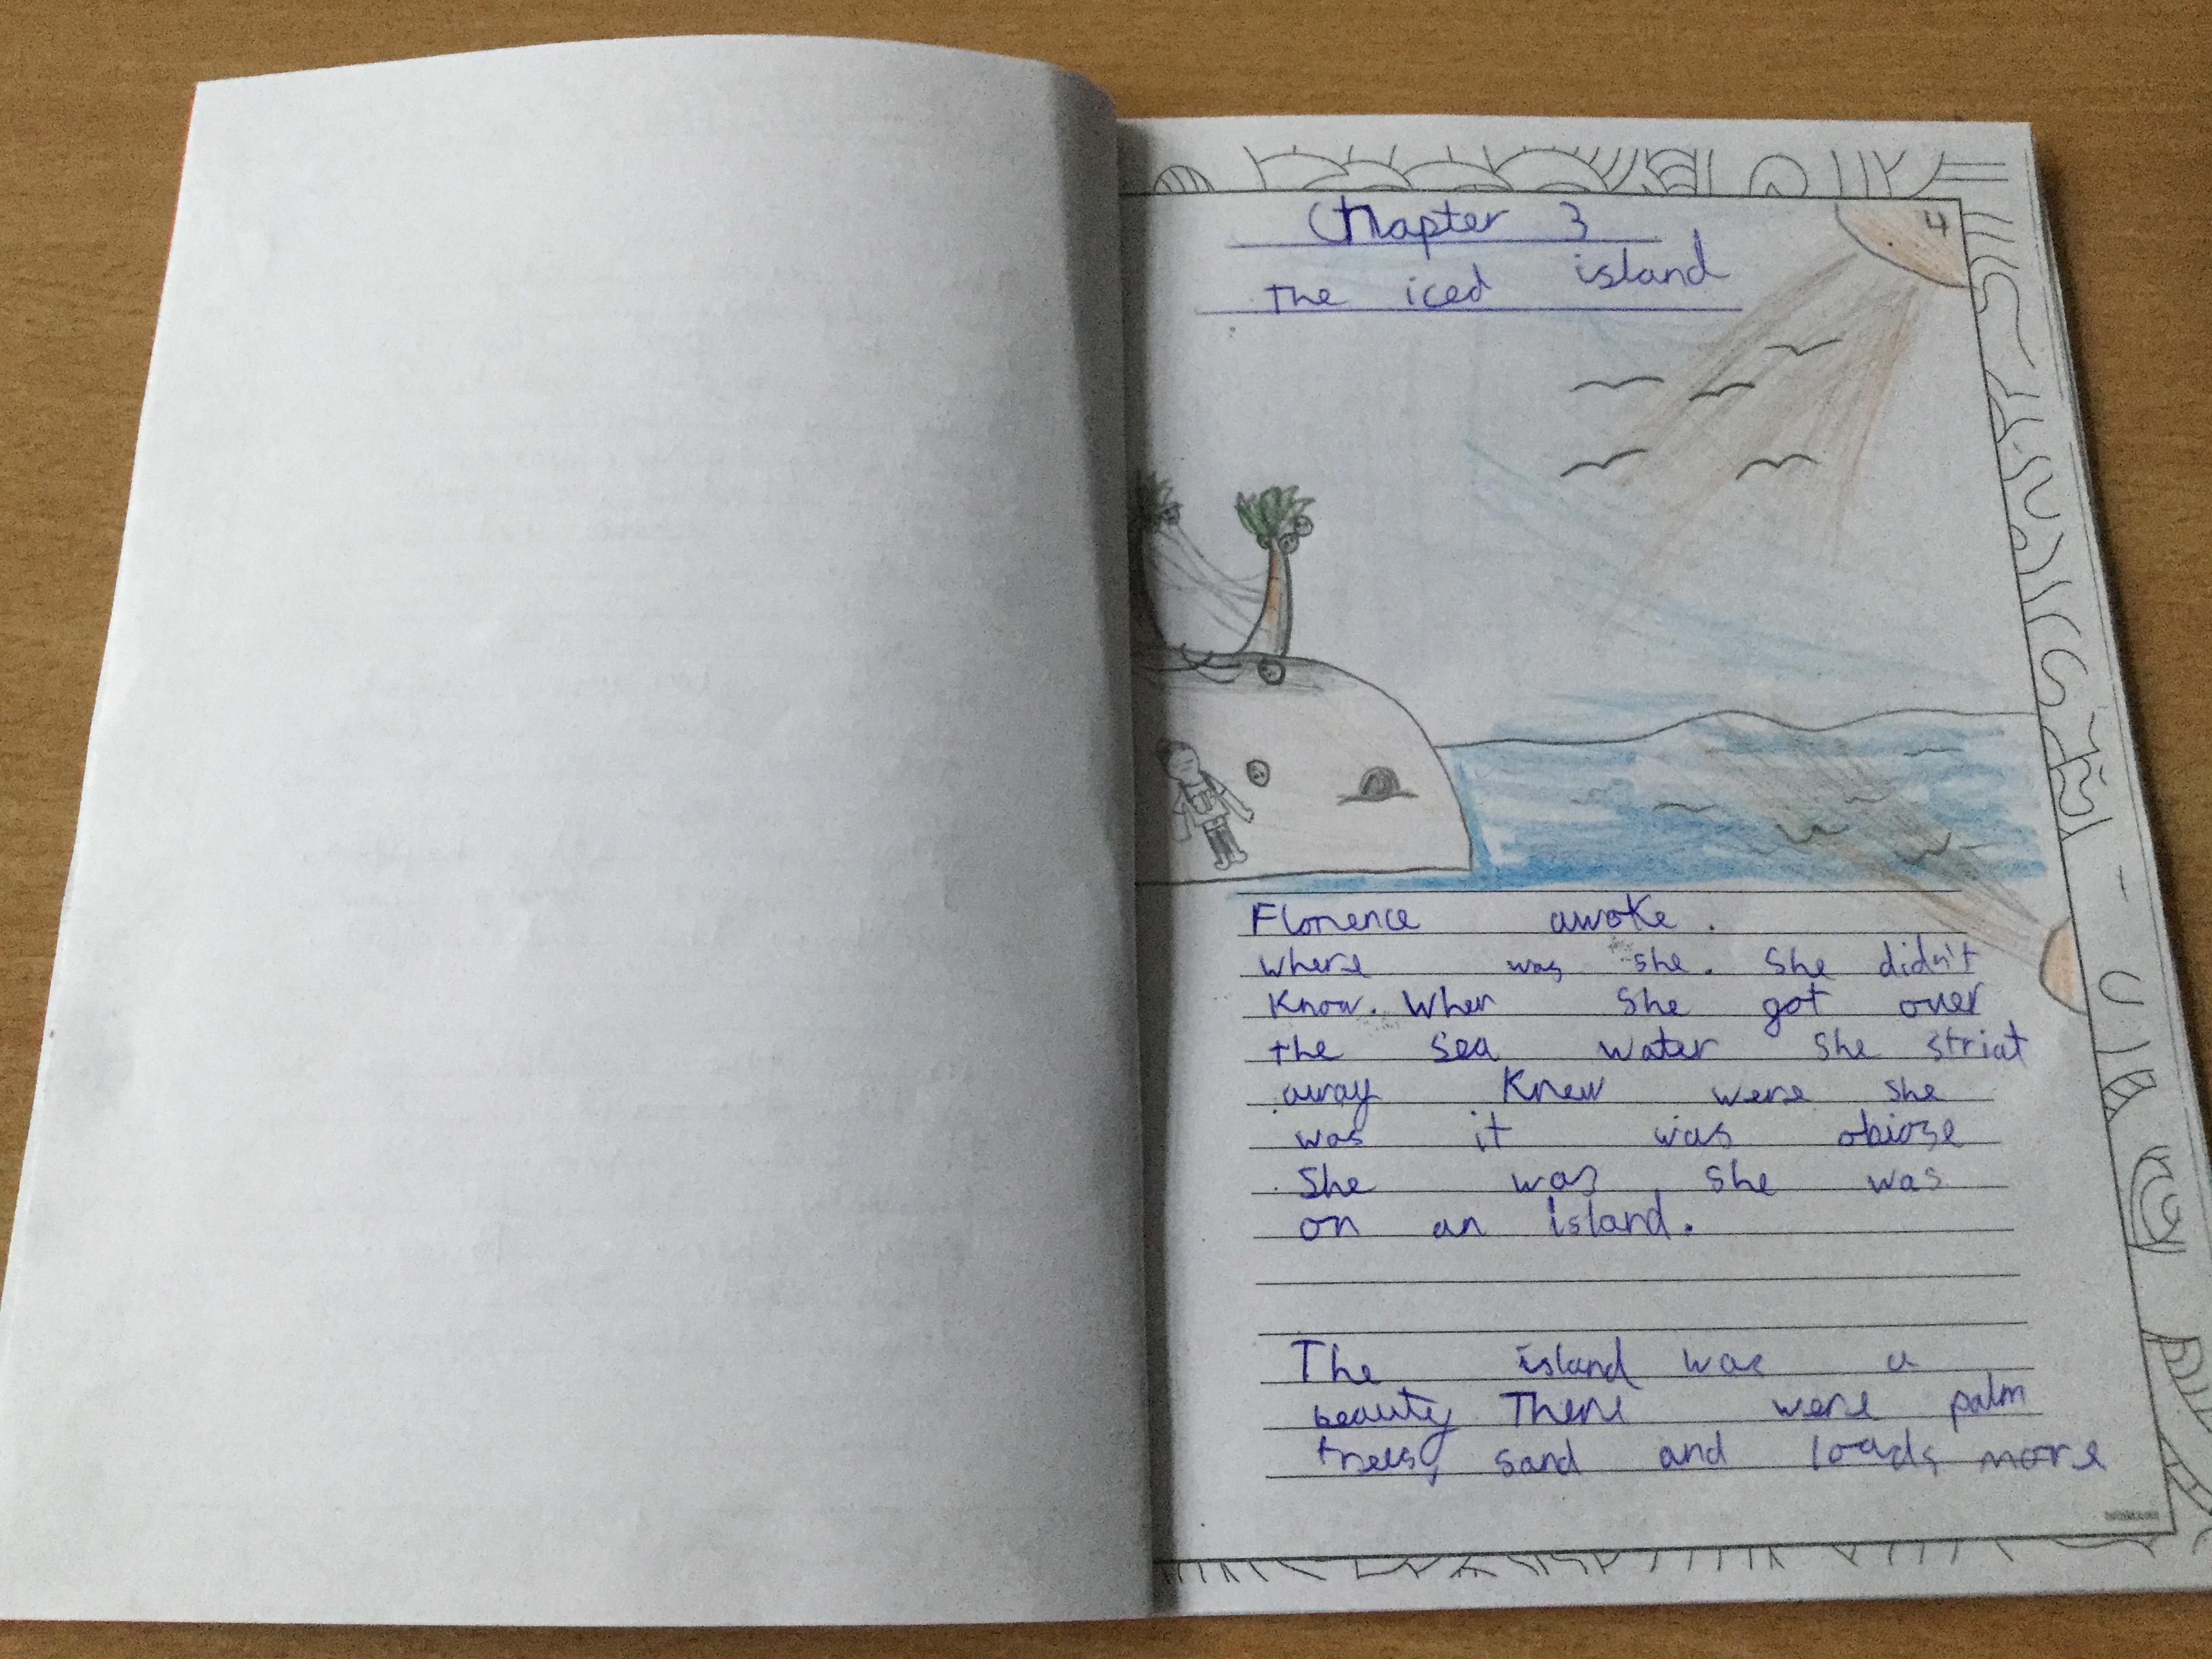 4
Chapter 3
The iced island
Florence awoke.
where was she. She didn't
know. When she got over
the sea water she striat
away knew were she
was it was obiose
She was she was
on an island.
The island was a
beauty There were palm
trees, sand and loads more